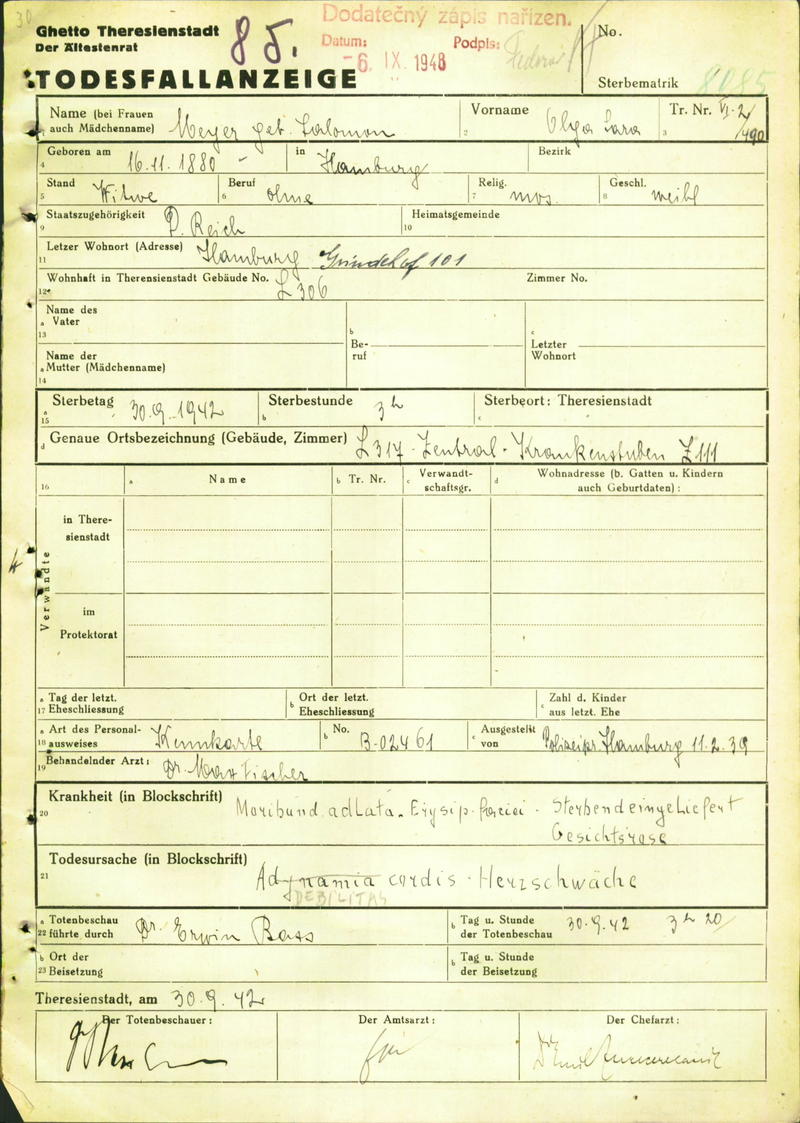 30
Ghetto Theresienstadt
Der Ältestenrat
85.
TODESFALLANZEIGE
Dodatečný zápis nařízen.
Datum: Podpis:
-6. IX. 1948
No.
Sterbematrik 8085
Name (bei Frauen auch Mädchenname) Meyer geb. Salomon
Vorname Olga Sara
Tr. Nr. VI-2/490
1 2 3
Geboren am 16.11.1880 - in Hamburg Bezirk
4
Stand Witwe Beruf ohne Relig. mos. Geschl. weibl
5 6 7 8
Staatszugehörigkeit D. Reich Heimatsgemeinde
9 10
Letzer Wohnort (Adresse) Hamburg Grindelhof 101
11
Wohnhaft in Therensienstadt Gebäude No. L 306 Zimmer No.
12
Name des
a Vater
13
b Be-
ruf
c Letzter
Wohnort
Name der
a Mutter (Mädchenname)
14
a Sterbetag 30.9.1942 b Sterbestunde 3 h c Sterbeort: Theresienstadt
15
d Genaue Ortsbezeichnung (Gebäude, Zimmer) L 317 - Zentral - Krankenstuben Z 111
16 a Name b Tr. Nr. c Verwandt-
schaftsgr. d Wohnadresse (b. Gatten u. Kindern
auch Geburtdaten) :
Verwandte
in There-
sienstadt
im
Protektorat
a Tag der letzt.
17 Eheschliessung
b Ort der letzt.
Eheschliessung
c Zahl d. Kinder
aus letzt. Ehe
a Art des Personal-
18 ausweises Kennkarte b No. B-02461 c Ausgestellt
von Polizeipr. Hamburg 11.2.39
Behandelnder Arzt: Dr. Max Fischer
19
Krankheit (in Blockschrift) Moribund adlata. Erysip. faciei - Sterbend eingeliefert
20
Gesichtsrose
Todesursache (in Blockschrift)
21
Adynamia cordis - Herzschwäche
DEBILITAS
a Totenbeschau
22 führte durch Dr. Erwin Bass b Tag u. Stunde
der Totenbeschau 30.9.42 3 h 20
b Ort der
23 Beisetzung
b Tag u. Stunde
der Beisetzung
Theresienstadt, am 30.9.42
Der Totenbeschauer: Der Amtsarzt: Der Chefarzt: